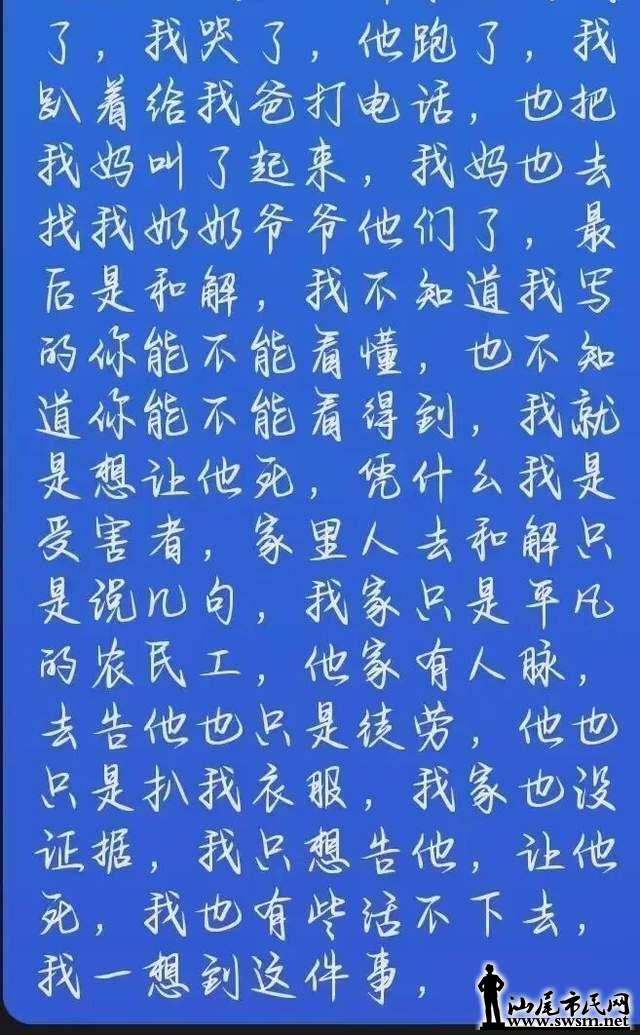 了，我哭了，他跑了，我
趴着给我爸打电话，也把
我妈叫了起来，我妈也去
找我奶奶爷爷他们了，最
后是和解，我不知道我写
的你能不能看懂，也不知
道你能不能看得到，我就
是想让他死，凭什么我是
受害者，家里人去和解只
是说几句，我家只是平凡
的农民工，他家有人脉，
去告他也只是徒劳，他也
只是扒我衣服，我家也没
证据，我只想告他，让他
死，我也有些活不下去，
我一想到这件事，
汕尾市民网
www.swsm.net